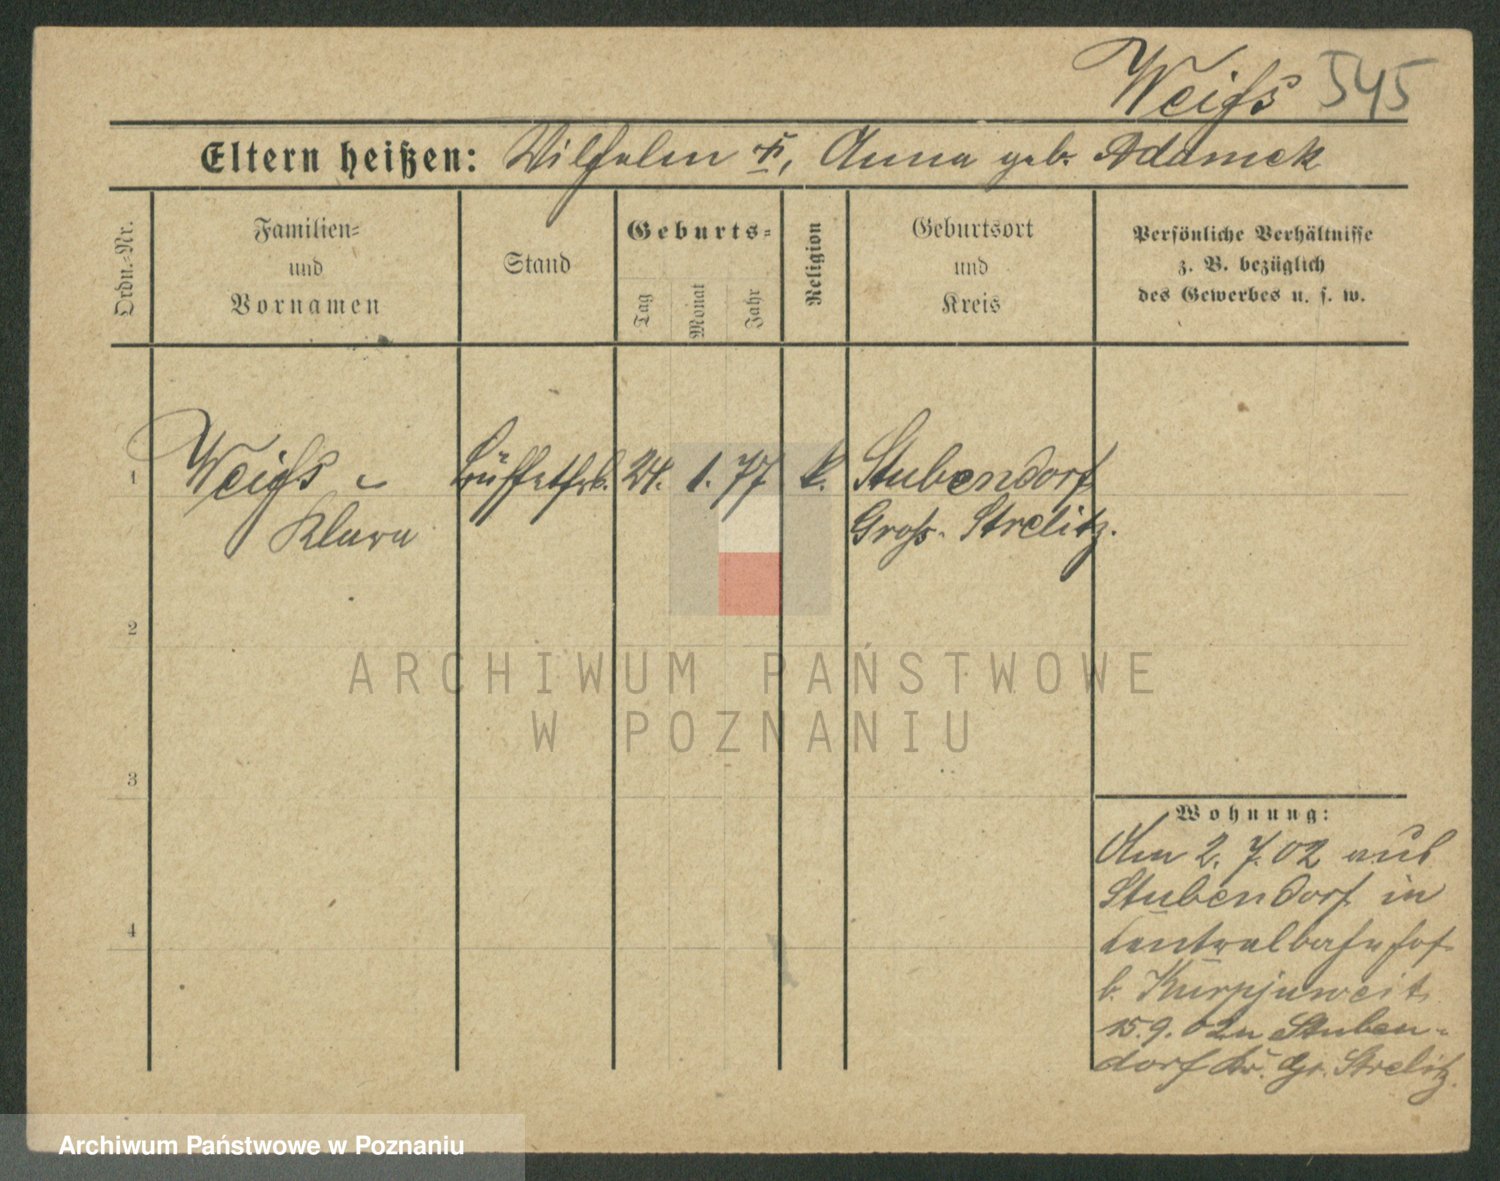 Weiß 545
Eltern heißen: Wilhelm u. Anna geb. Adamek
Ordn.-Nr.
Familien-
und
Vornamen
Stand
Geburts-
Tag
Monat
Jahr
Religion
Geburtsort
und
Kreis
Persönliche Verhältnisse
z. B. bezüglich
des Gewerbes u. s. w.
1 Weiß Büffetfrl. 24. 1. 77 k. Stubendorf
Klara Groß-Strelitz.
2
3
4
Wohnung:
Am 2. 7. 02 aus
Stubendorf in
Centralbahnhof
b. Kurpjuweit
15.9.02 n Stuben-
dorf Kr. Gr. Strelitz.
ARCHIWUM PAŃSTWOWE
W POZNANIU
Archiwum Państwowe w Poznaniu